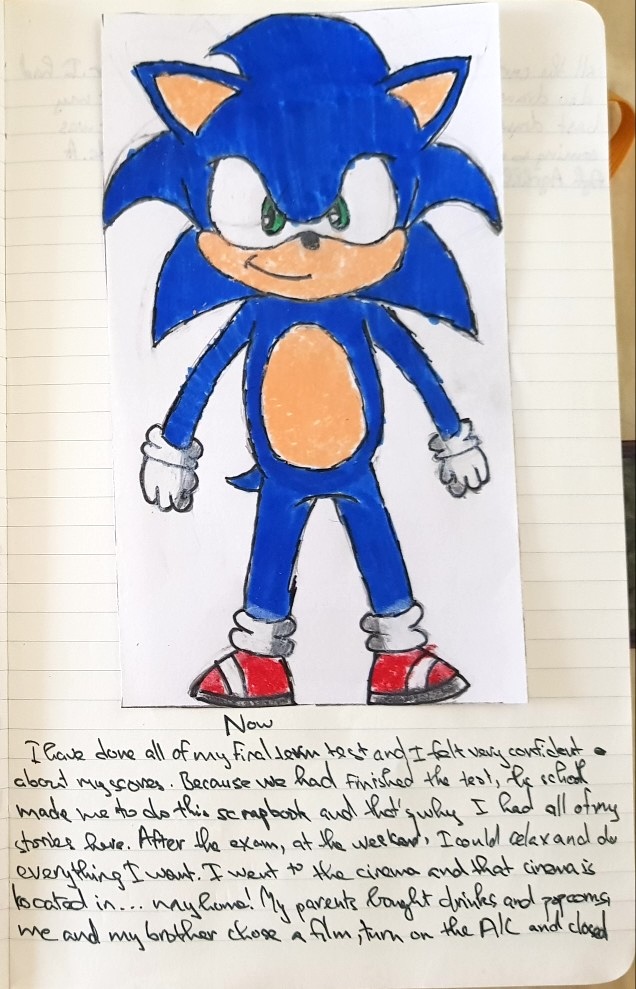 Now
I have done all of my final term test and I felt very confident
about my scores. Because we had finished the test, the school
made me to do this scrapbook and that's why I had all of my
stories here. After the exam, at the weekend, I could relax and do
everything I want. I went to the cinema and that cinema is
located in... my home! My parents bought drinks and popcorns,
me and my brother chose a film, turn on the A/C and closed